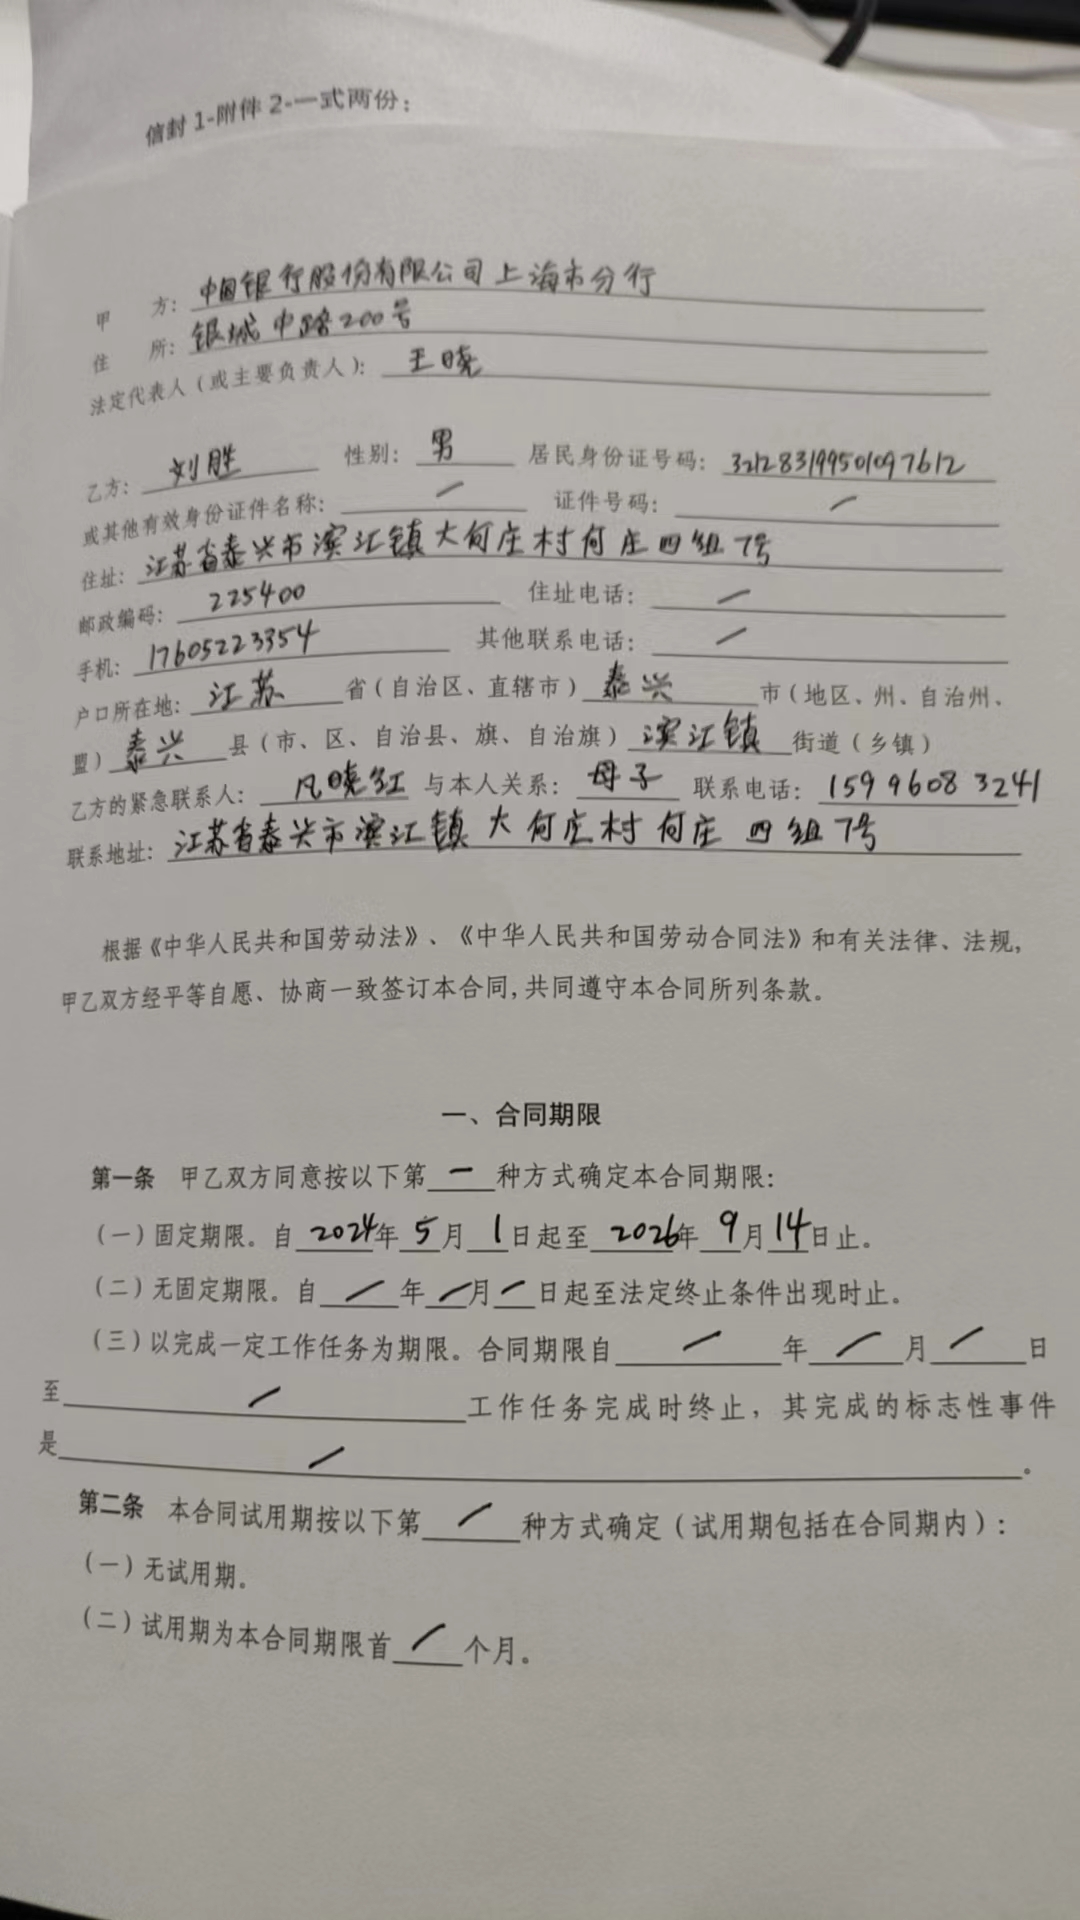 信封 1-附件 2-一式两份：
甲 方：中国银行股份有限公司上海市分行
住 所：银城中路200号
法定代表人（或主要负责人）：王晓
乙方：刘胜 性别：男 居民身份证号码：321283199501097612
或其他有效身份证件名称：/ 证件号码：/
住址：江苏省泰兴市滨江镇大何庄村何庄四组7号
邮政编码：225400 住址电话：/
手机：17605223354 其他联系电话：/
户口所在地：江苏省（自治区、直辖市）泰兴市（地区、州、自治州、
盟）泰兴县（市、区、自治县、旗、自治旗）滨江镇街道（乡镇）
乙方的紧急联系人：凡晓红 与本人关系：母子 联系电话：15996083241
联系地址：江苏省泰兴市滨江镇大何庄村何庄四组7号
根据《中华人民共和国劳动法》、《中华人民共和国劳动合同法》和有关法律、法规，
甲乙双方经平等自愿、协商一致签订本合同，共同遵守本合同所列条款。
一、合同期限
第一条 甲乙双方同意按以下第一种方式确定本合同期限：
（一）固定期限。自2024年5月1日起至2026年9月14日止。
（二）无固定期限。自/年/月/日起至法定终止条件出现时止。
（三）以完成一定工作任务为期限。合同期限自/年/月/日
至/工作任务完成时终止，其完成的标志性事件
是/。
第二条 本合同试用期按以下第/种方式确定（试用期包括在合同期内）：
（一）无试用期。
（二）试用期为本合同期限首/个月。